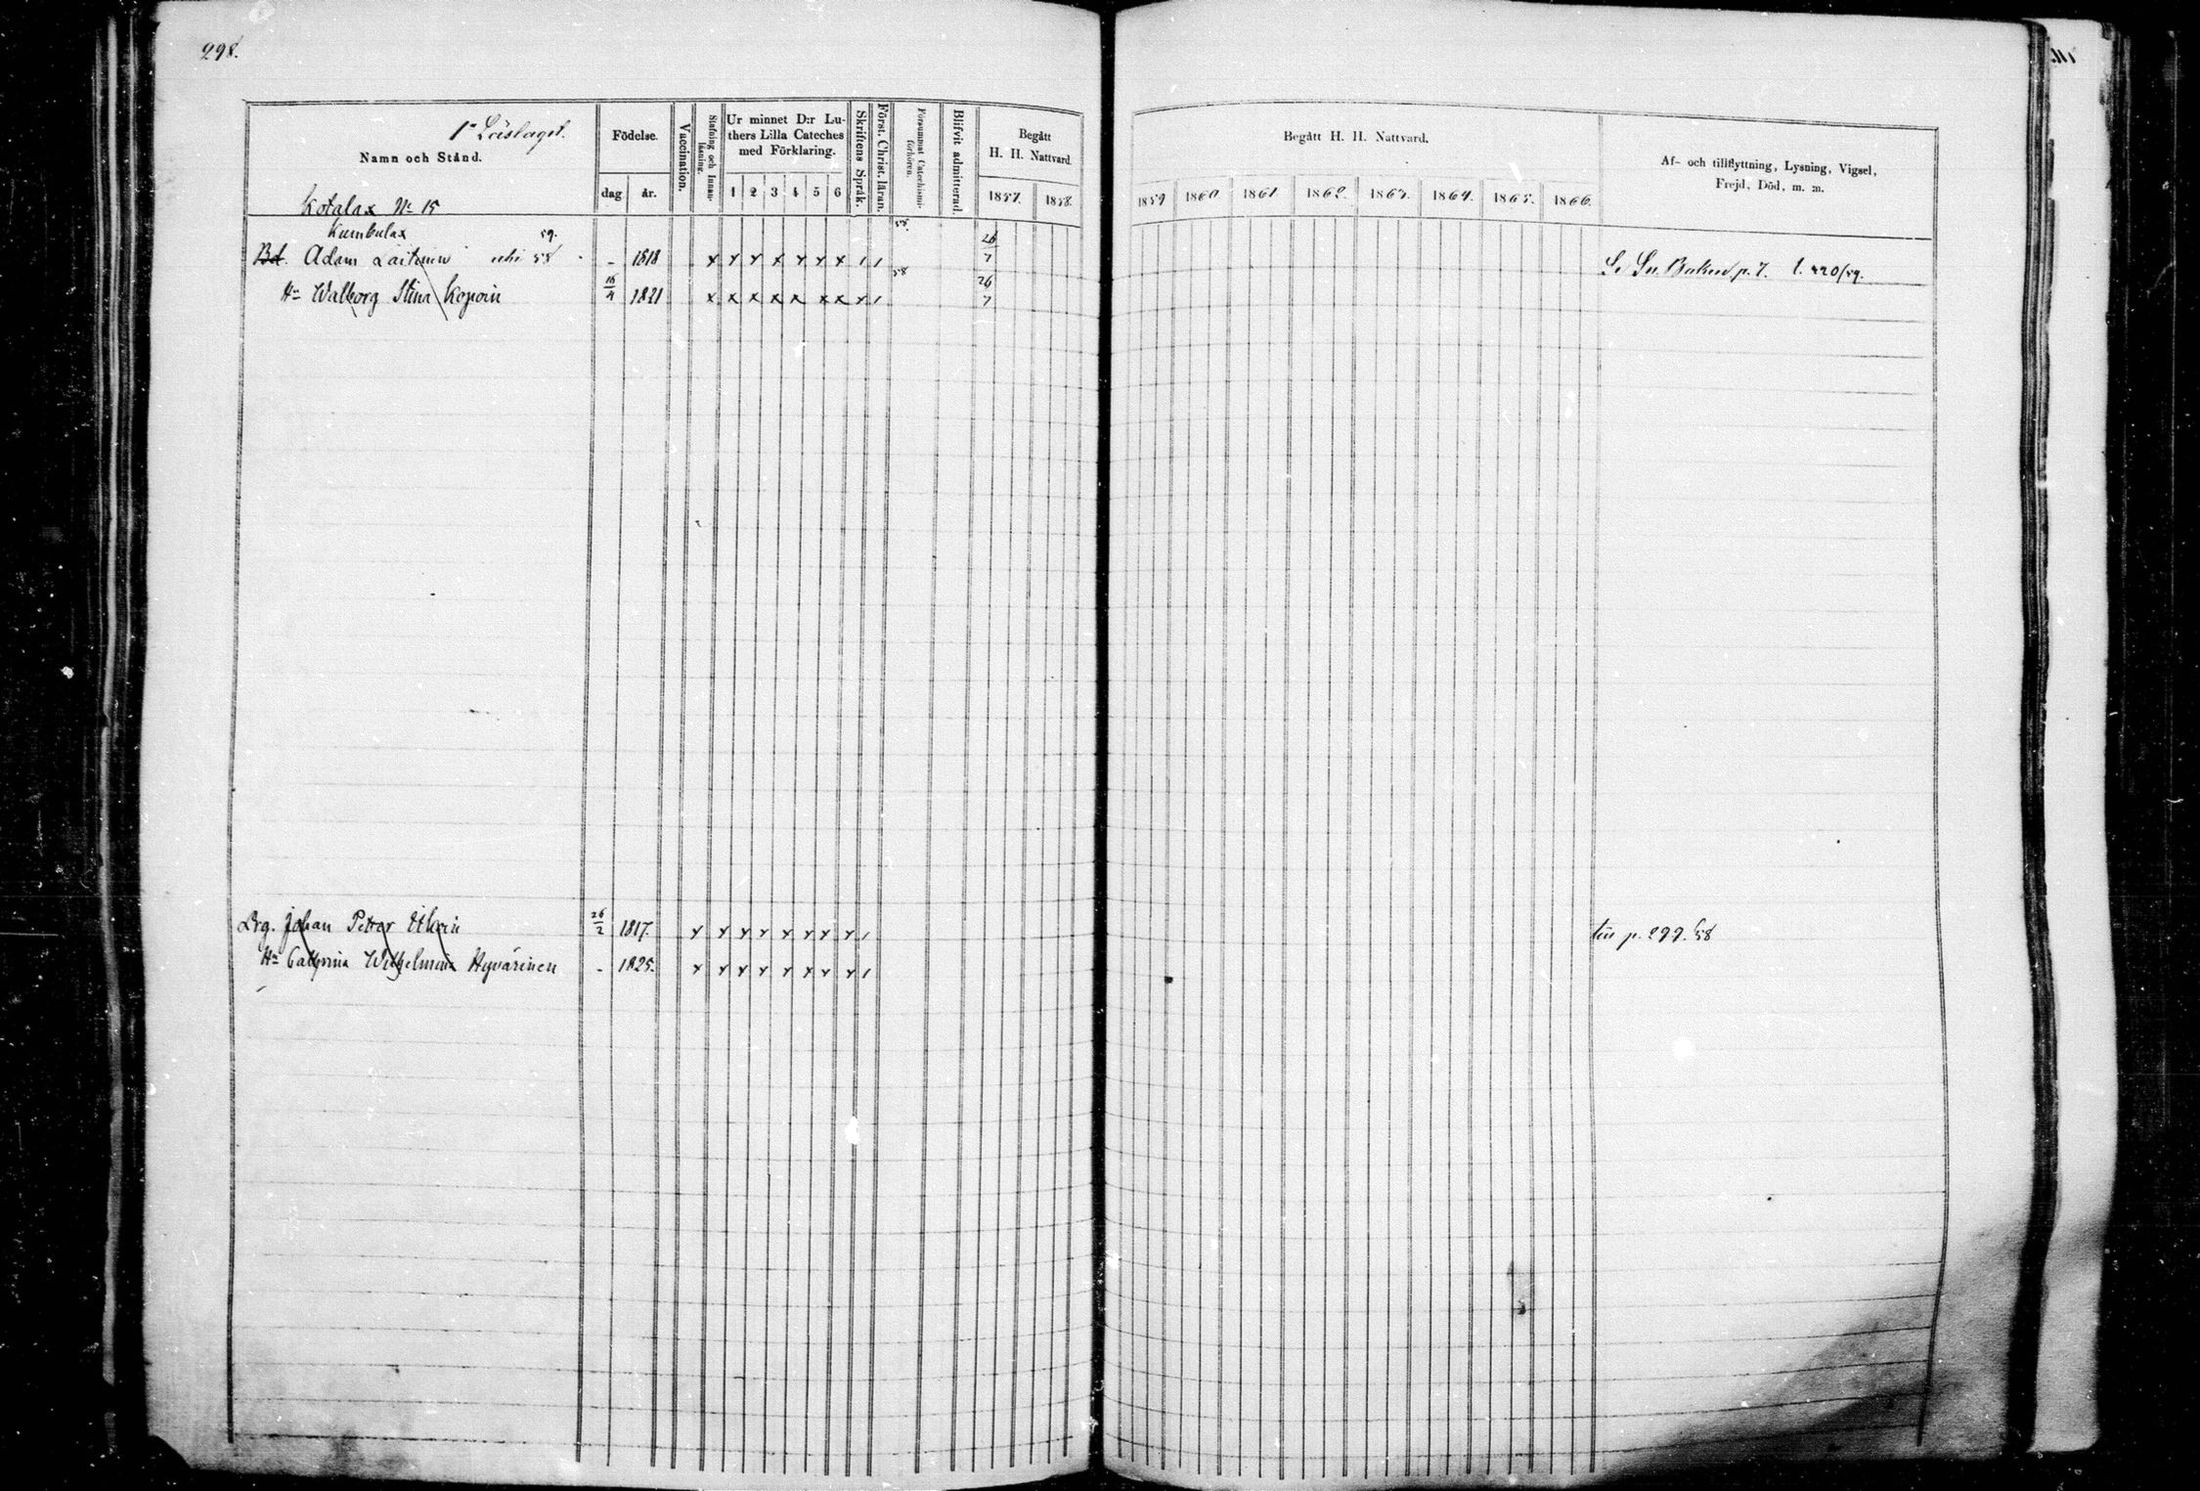 298.
1a Läslaget.
Namn och Stånd.
Födelse.
dag år.
Vaccination.
Stafning och Innanläsning.
Ur minnet D:r Luthers Lilla Cateches med Förklaring.
1 2 3 4 5 6
Skriftens Språk.
Först. Christ. läran.
Försummat Catechismiförhören.
Blifvit admitterad.
Begått H. H. Nattvard.
1857. 1858.
Begått H. H. Nattvard.
1859 1860 1861 1862. 1863. 1864. 1865. 1866.
Af- och tillflyttning, Lysning, Vigsel, Frejd, Död, m. m.
Kotalax No 15
Kumbulax 59.
Bd. Adam Laitinen 58 - 1818 x x x x x x x 1 1 58. 26/7 p. 7. 420/59.
Hu Walborg Stina Kopoin 16/4 1821 x x x x x x x x 1 58 26/7
Drg. Johan Petter 26/2 1817. x x x x x x x x 1 p. 299. 58
Hu Cathrina Wilhelmina Hyvärinen - 1825. x x x x x x x x 1